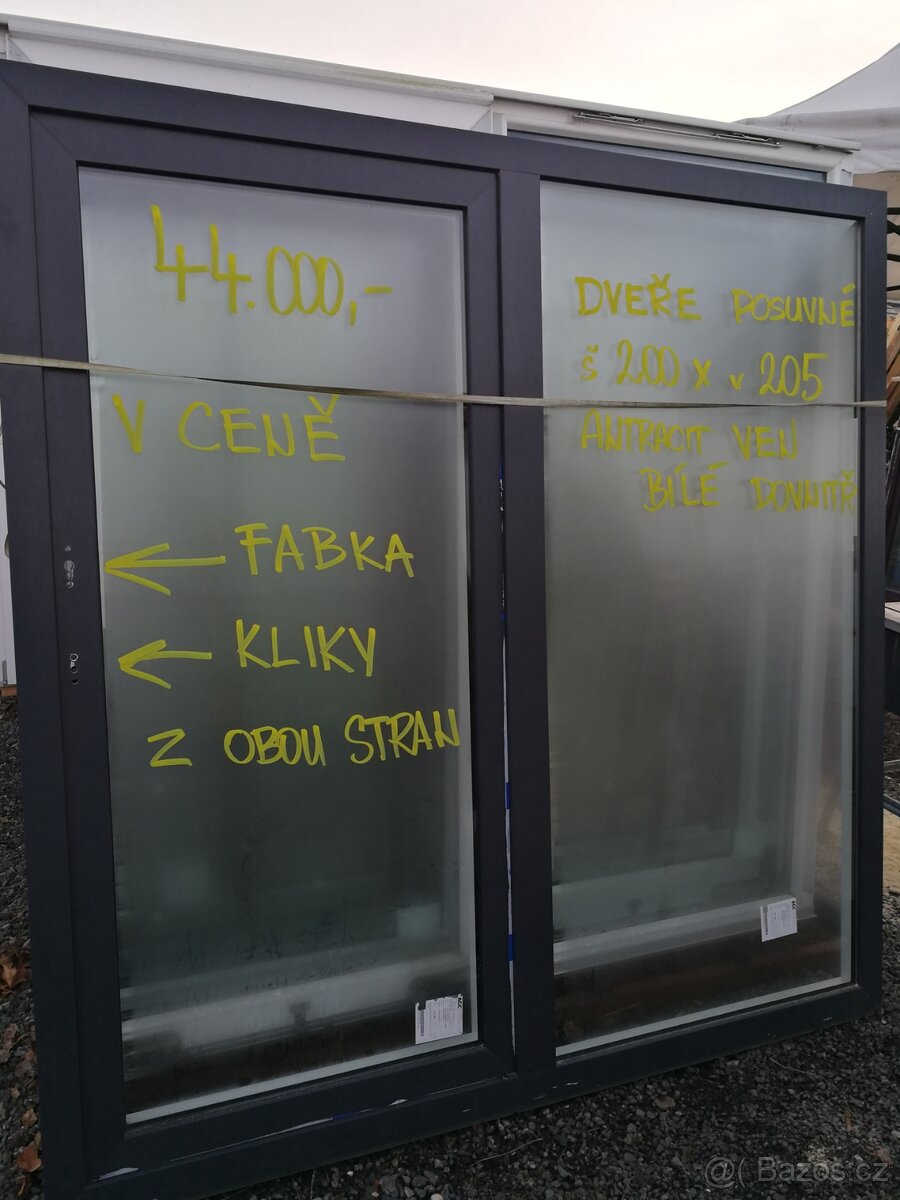 44.000,-
V CENĚ
FABKA
KLIKY
Z OBOU STRAN
DVEŘE POSUVNÉ
š 200 x v 205
ANTRACIT VEN
BÍLÉ DOVNITŘ
AGC
AGC
@( Bazos.cz